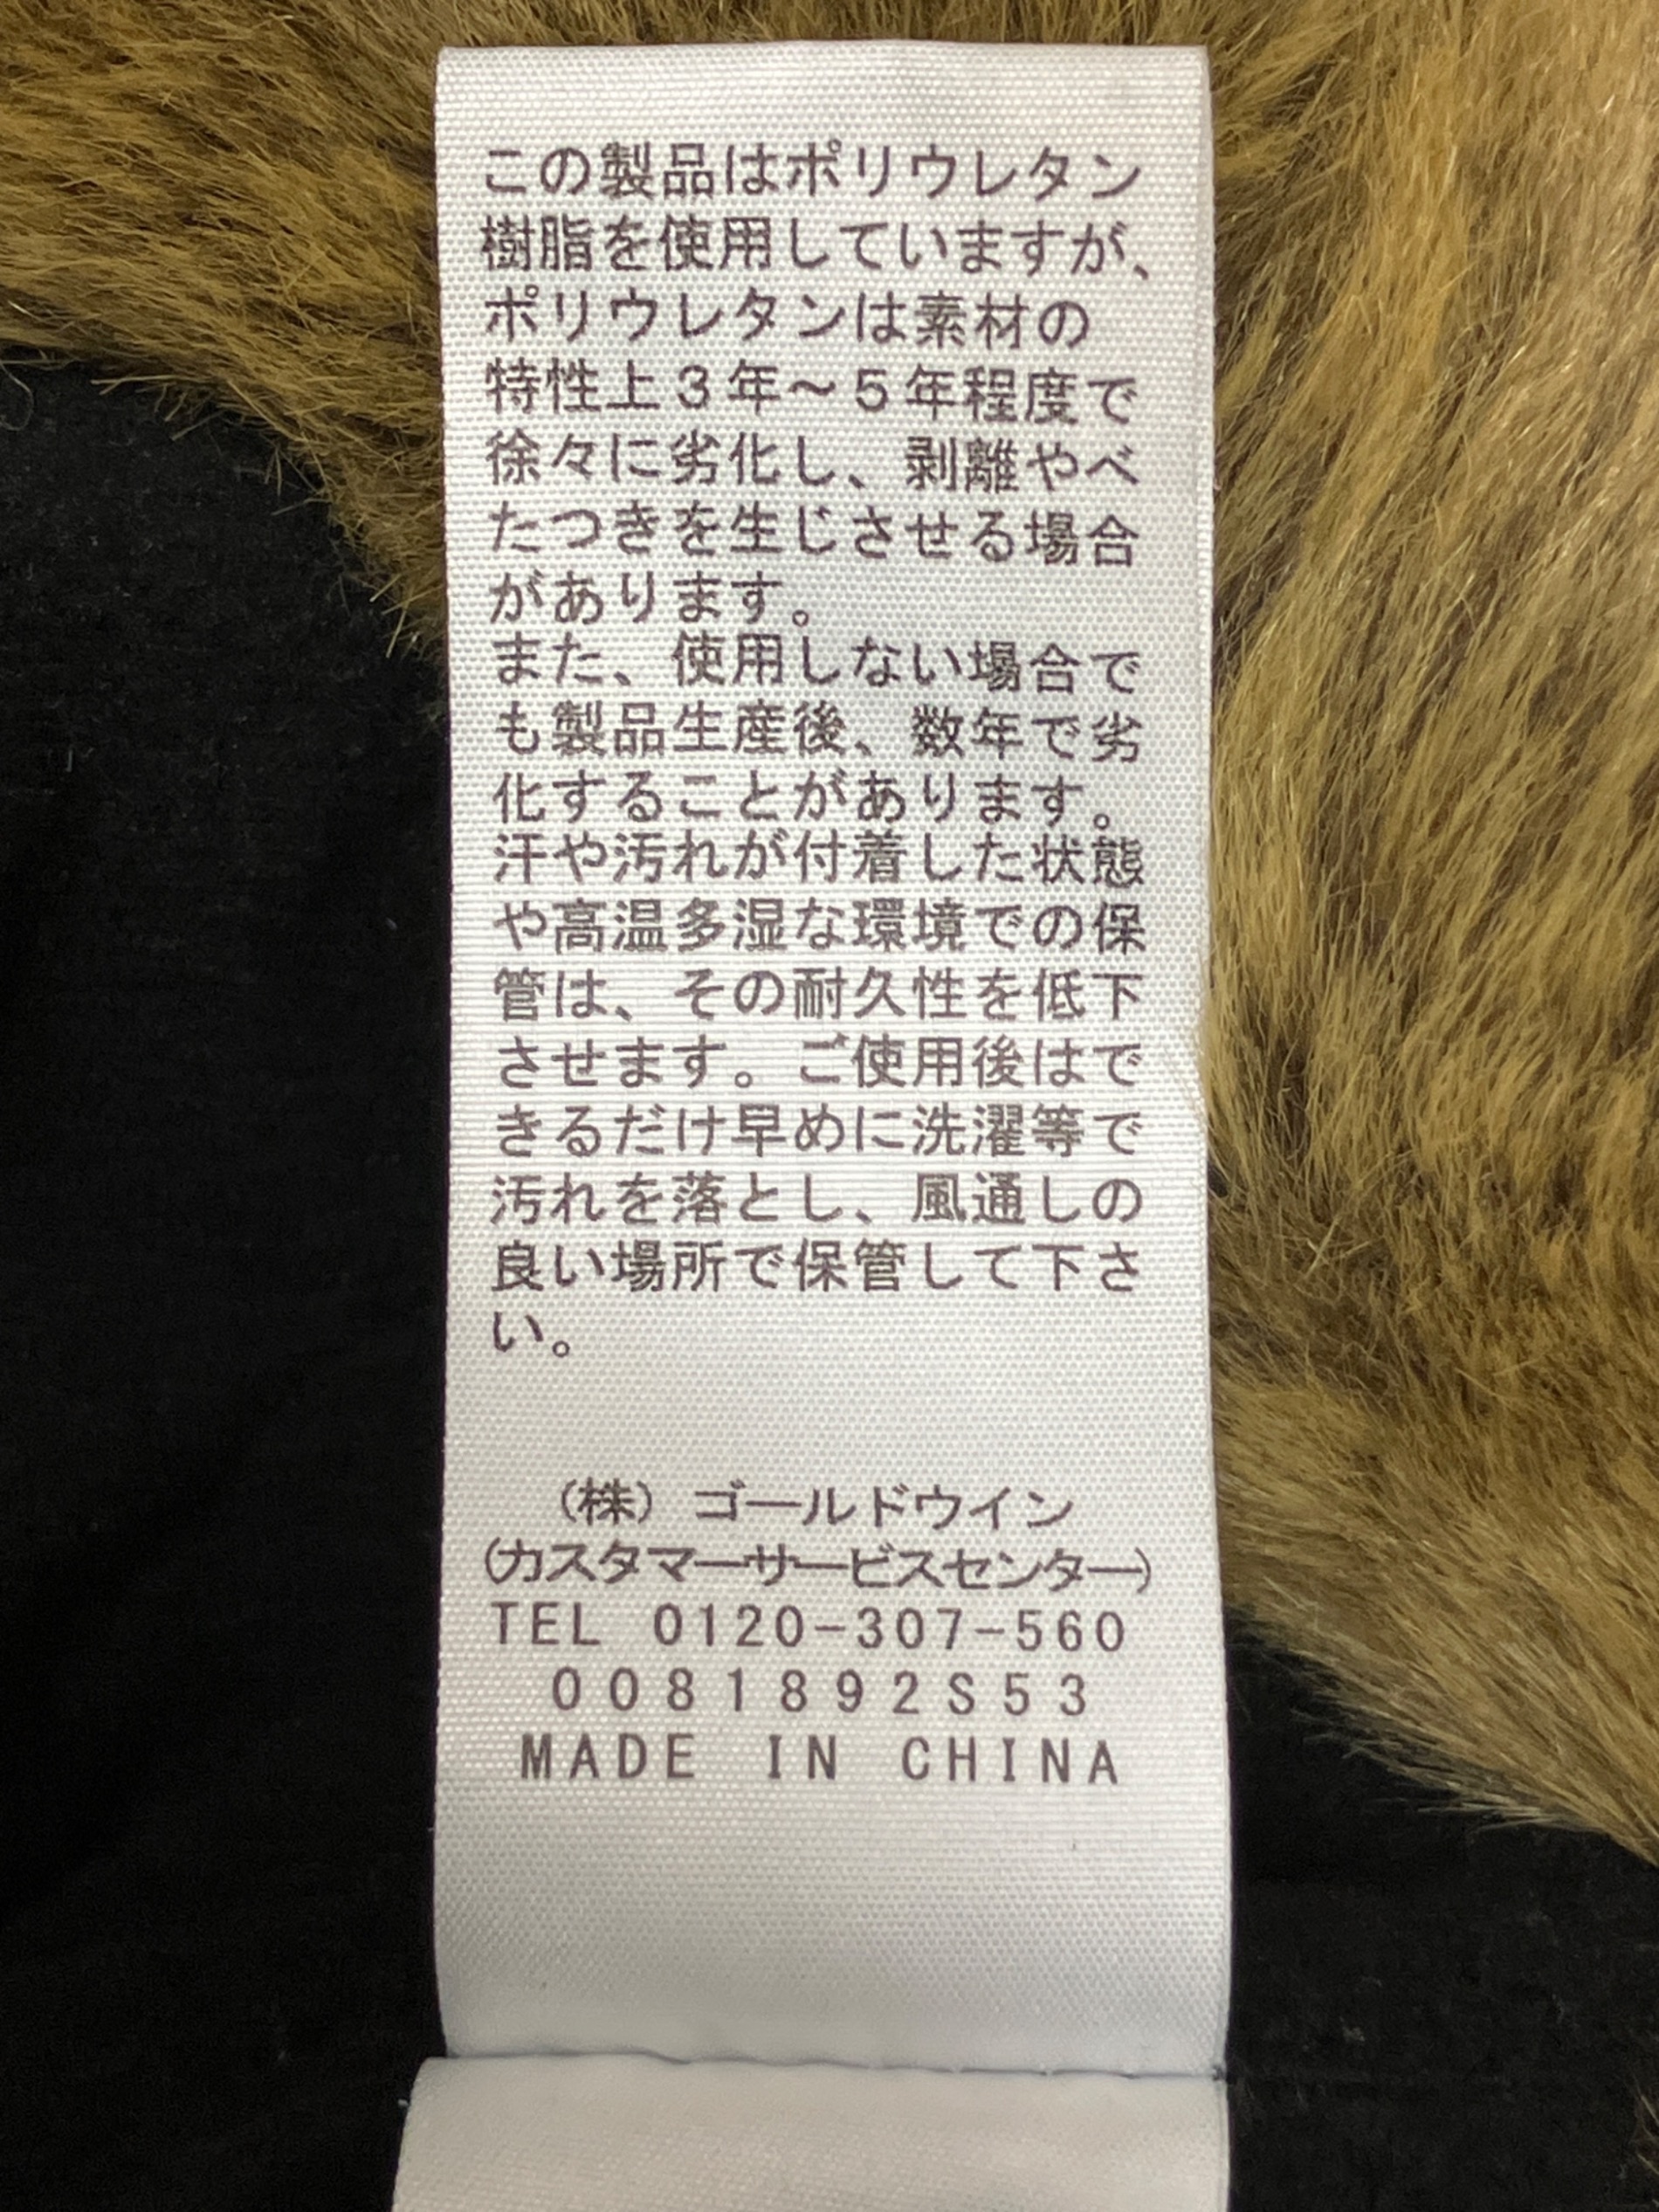 この製品はポリウレタン
樹脂を使用していますが、
ポリウレタンは素材の
特性上３年～５年程度で
徐々に劣化し、剥離やベ
たつきを生じさせる場合
があります。
また、使用しない場合で
も製品生産後、数年で劣
化することがあります。
汗や汚れが付着した状態
や高温多湿な環境での保
管は、その耐久性を低下
させます。ご使用後はで
きるだけ早めに洗濯等で
汚れを落とし、風通しの
良い場所で保管して下さ
い。
（株）ゴールドウイン
（カスタマーサービスセンター）
TEL 0120-307-560
0081892S53
MADE IN CHINA